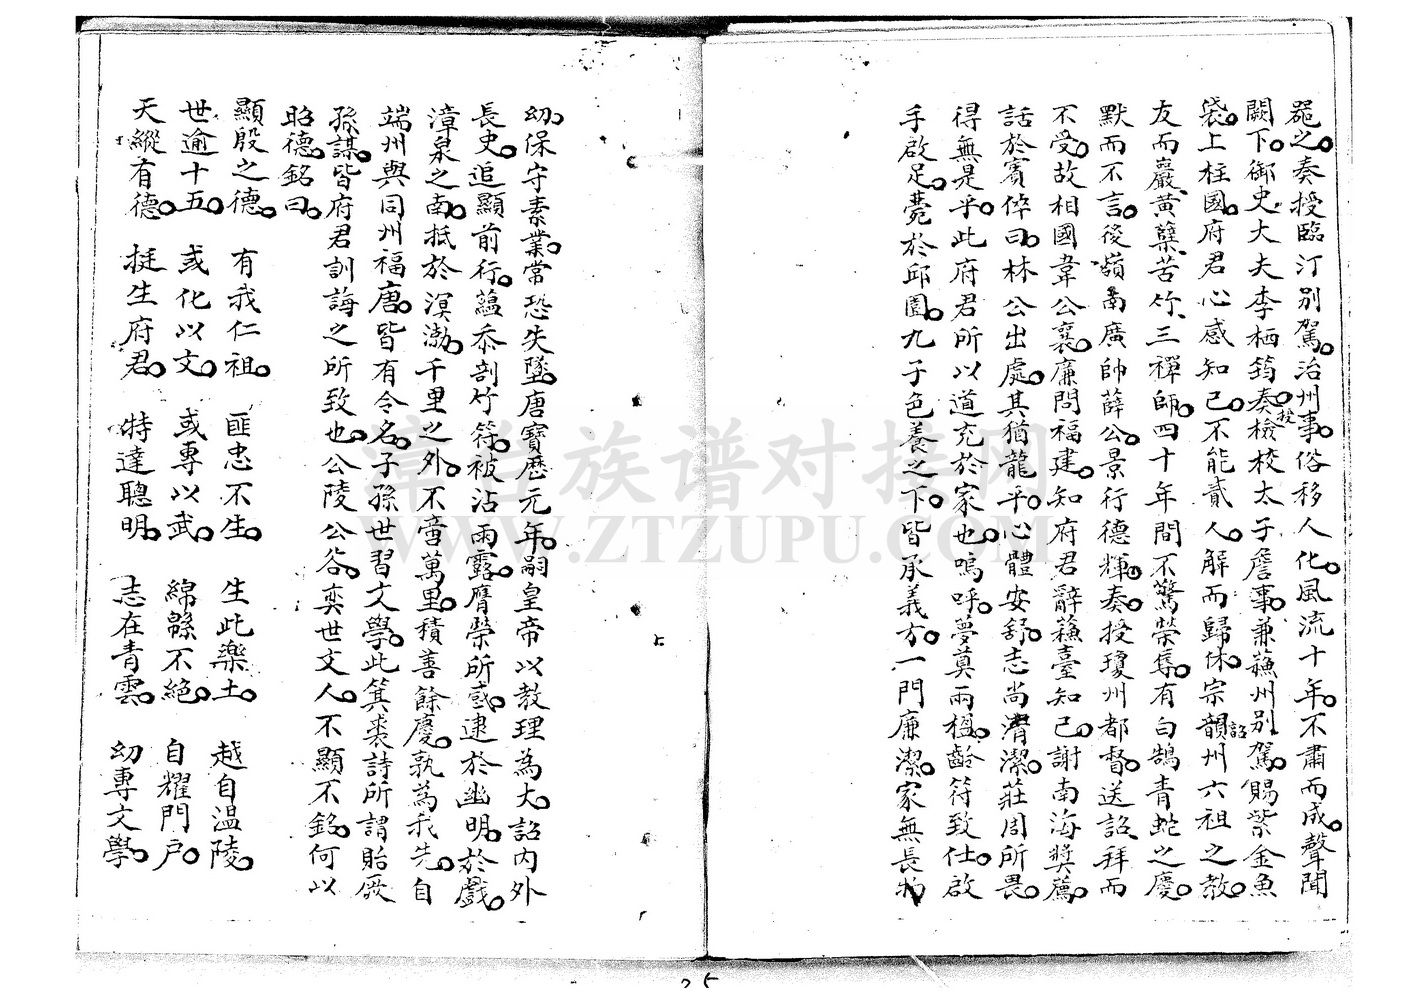 器之奏授臨汀別駕治州事俗移人化風流十年不肅而成聲聞
闕下御史大夫李栖筠奏授檢校太子詹事兼蘓州別駕賜紫金魚
袋上柱國府君心感知己不能貳人解而歸休宗韻詔州六祖之教
友而嚴黃蘗苦竹三禪師四十年間不驚榮辱有白鵠青蛇之慶
默而不言後嶺南廣帥薛公景行德輝奏授瓊州都督送詔拜而
不受故相國韋公襄廉問福建知府君辭蘓臺知己謝南海獎薦
話於賓倅曰林公出處其猶龍乎心體安舒志尚清潔莊周所畏
得無是乎此府君所以道充於家也嗚呼夢莫兩楹齡符致仕啟
手啟足薨於邱園九子色養之下皆承義方一門廉潔家無長物
幼保守素業常恐失墜唐寶歷元年嗣皇帝以教理為大詔內外
長史追顯前行蘊忝剖竹符被沾雨露膺榮所感逮於幽明於戲
漳泉之南抵於溟渤千里之外不啻萬里積善餘慶孰為我先自
端州與同州福唐皆有令名子孫世習文學此箕裘詩所謂貽厥
孫謀皆府君訓誨之所致也公陵公谷奕世文人不顯不銘何以
昭德銘曰
顯殷之德 有我仁祖 匪忠不生 生此樂土 越自温陵
世逾十五 或化以文 或專以武 綿緜不絕 自耀門戶
天縱有德 挺生府君 特達聰明 志在青雲 幼專文學
25
滓台族谱对接网
WWW.ZTZUPU.COM